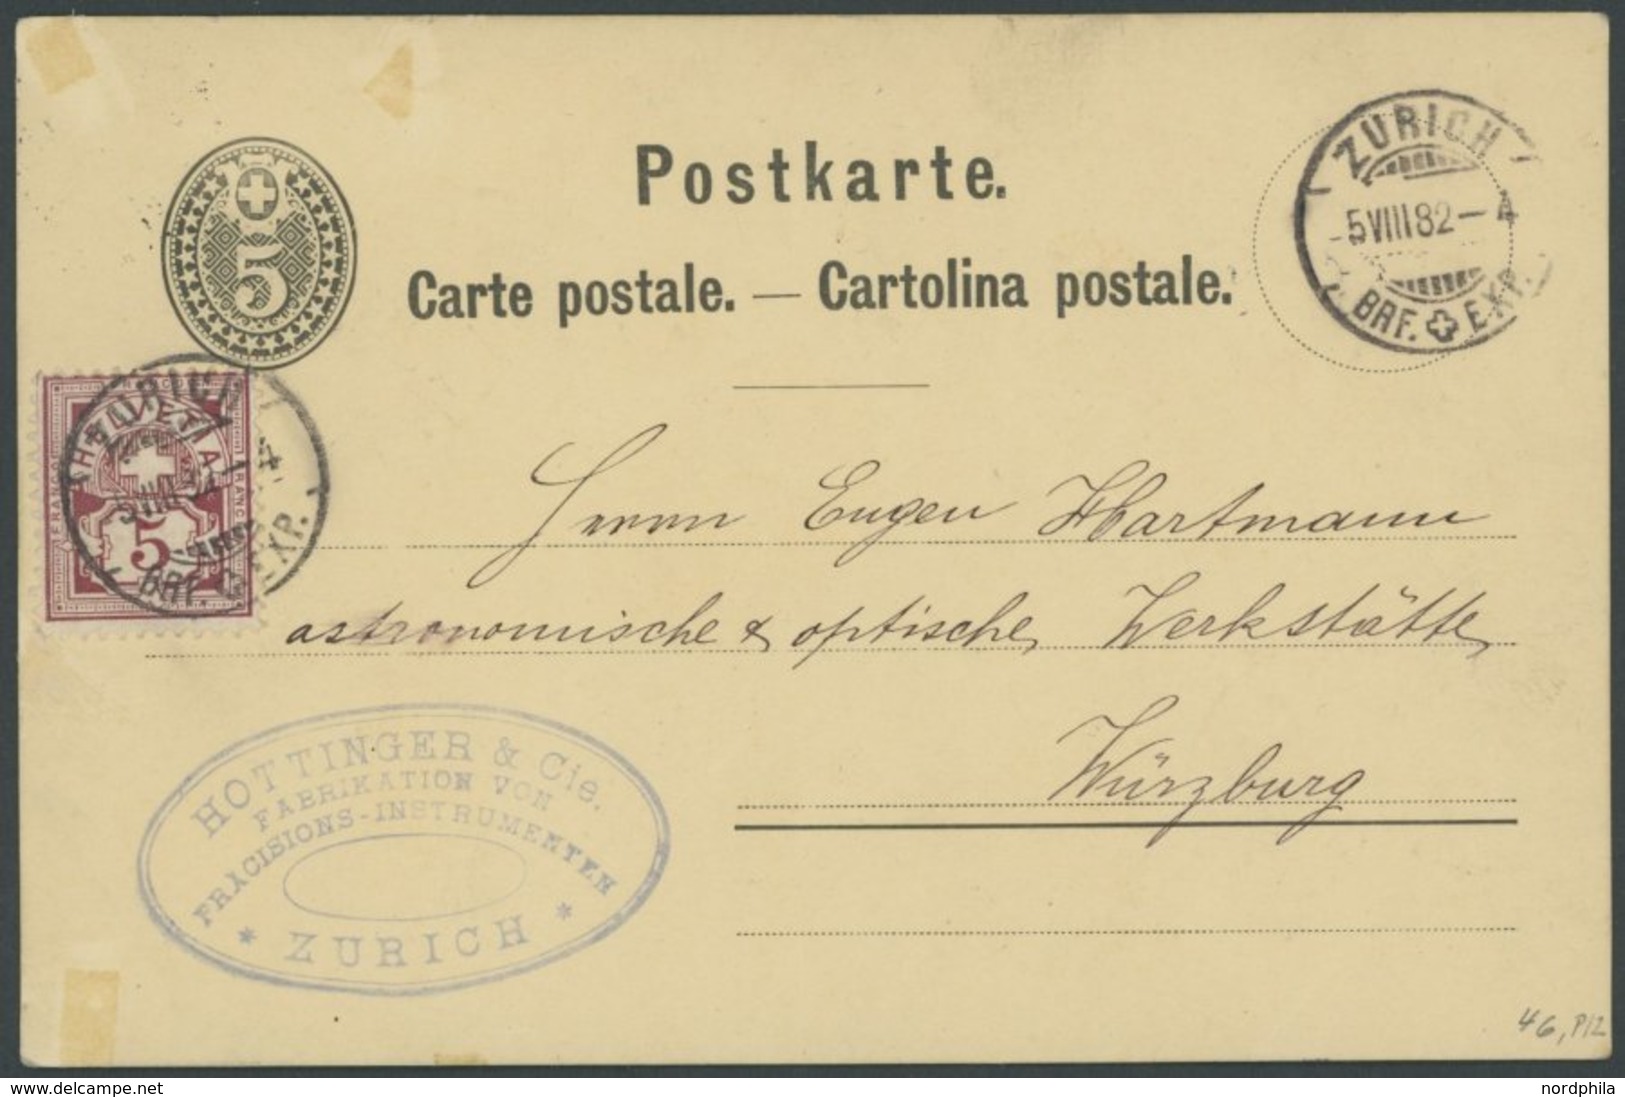 Postkarte.
Carte postale. — Cartolina postale.
5
ZÜRICH
5VIII82-4
BRF. EXP.
HELVETIA
FRANCO
5
ZÜRICH
5VIII82-4
BRF. EXP.
Herrn Eugen Hartmann
astronomische & optische Werkstätte
Würzburg
HOTTINGER & Cie.
FABRIKATION VON
PRÄCISIONS-INSTRUMENTEN
* ZURICH *
46, P12
www.delcampe.net
nordphila